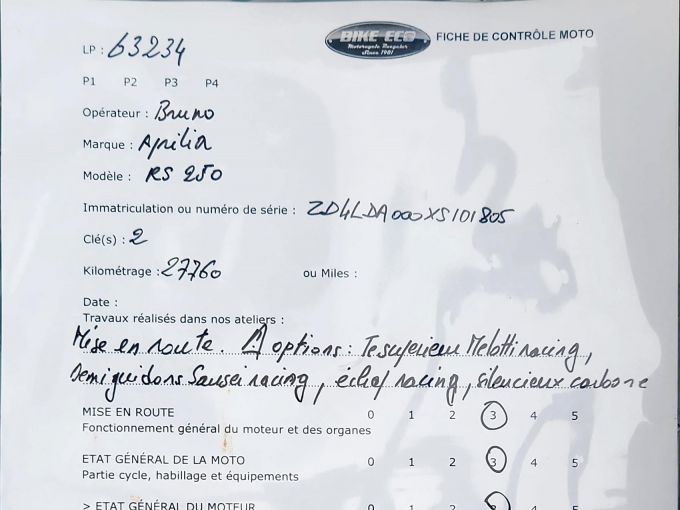 BIKE ECO
Motorcycle Recycler
Since 1981
FICHE DE CONTRÔLE MOTO
LP : 63234
P1 P2 P3 P4
Opérateur : Bruno
Marque : Aprilia
Modèle : RS 250
Immatriculation ou numéro de série : ZD4LDA000XS101805
Clé(s) : 2
Kilométrage : 27760 ou Miles :
Date :
Travaux réalisés dans nos ateliers :
Mise en route. ⚠ options : Te superieur Melotti racing,
Demiguidons Sansei racing, échaf racing, silencieux carbone
MISE EN ROUTE 0 1 2 3 4 5
Fonctionnement général du moteur et des organes
ETAT GÉNÉRAL DE LA MOTO 0 1 2 3 4 5
Partie cycle, habillage et équipements
> ETAT GÉNÉRAL DU MOTEUR 0 1 2 3 4 5